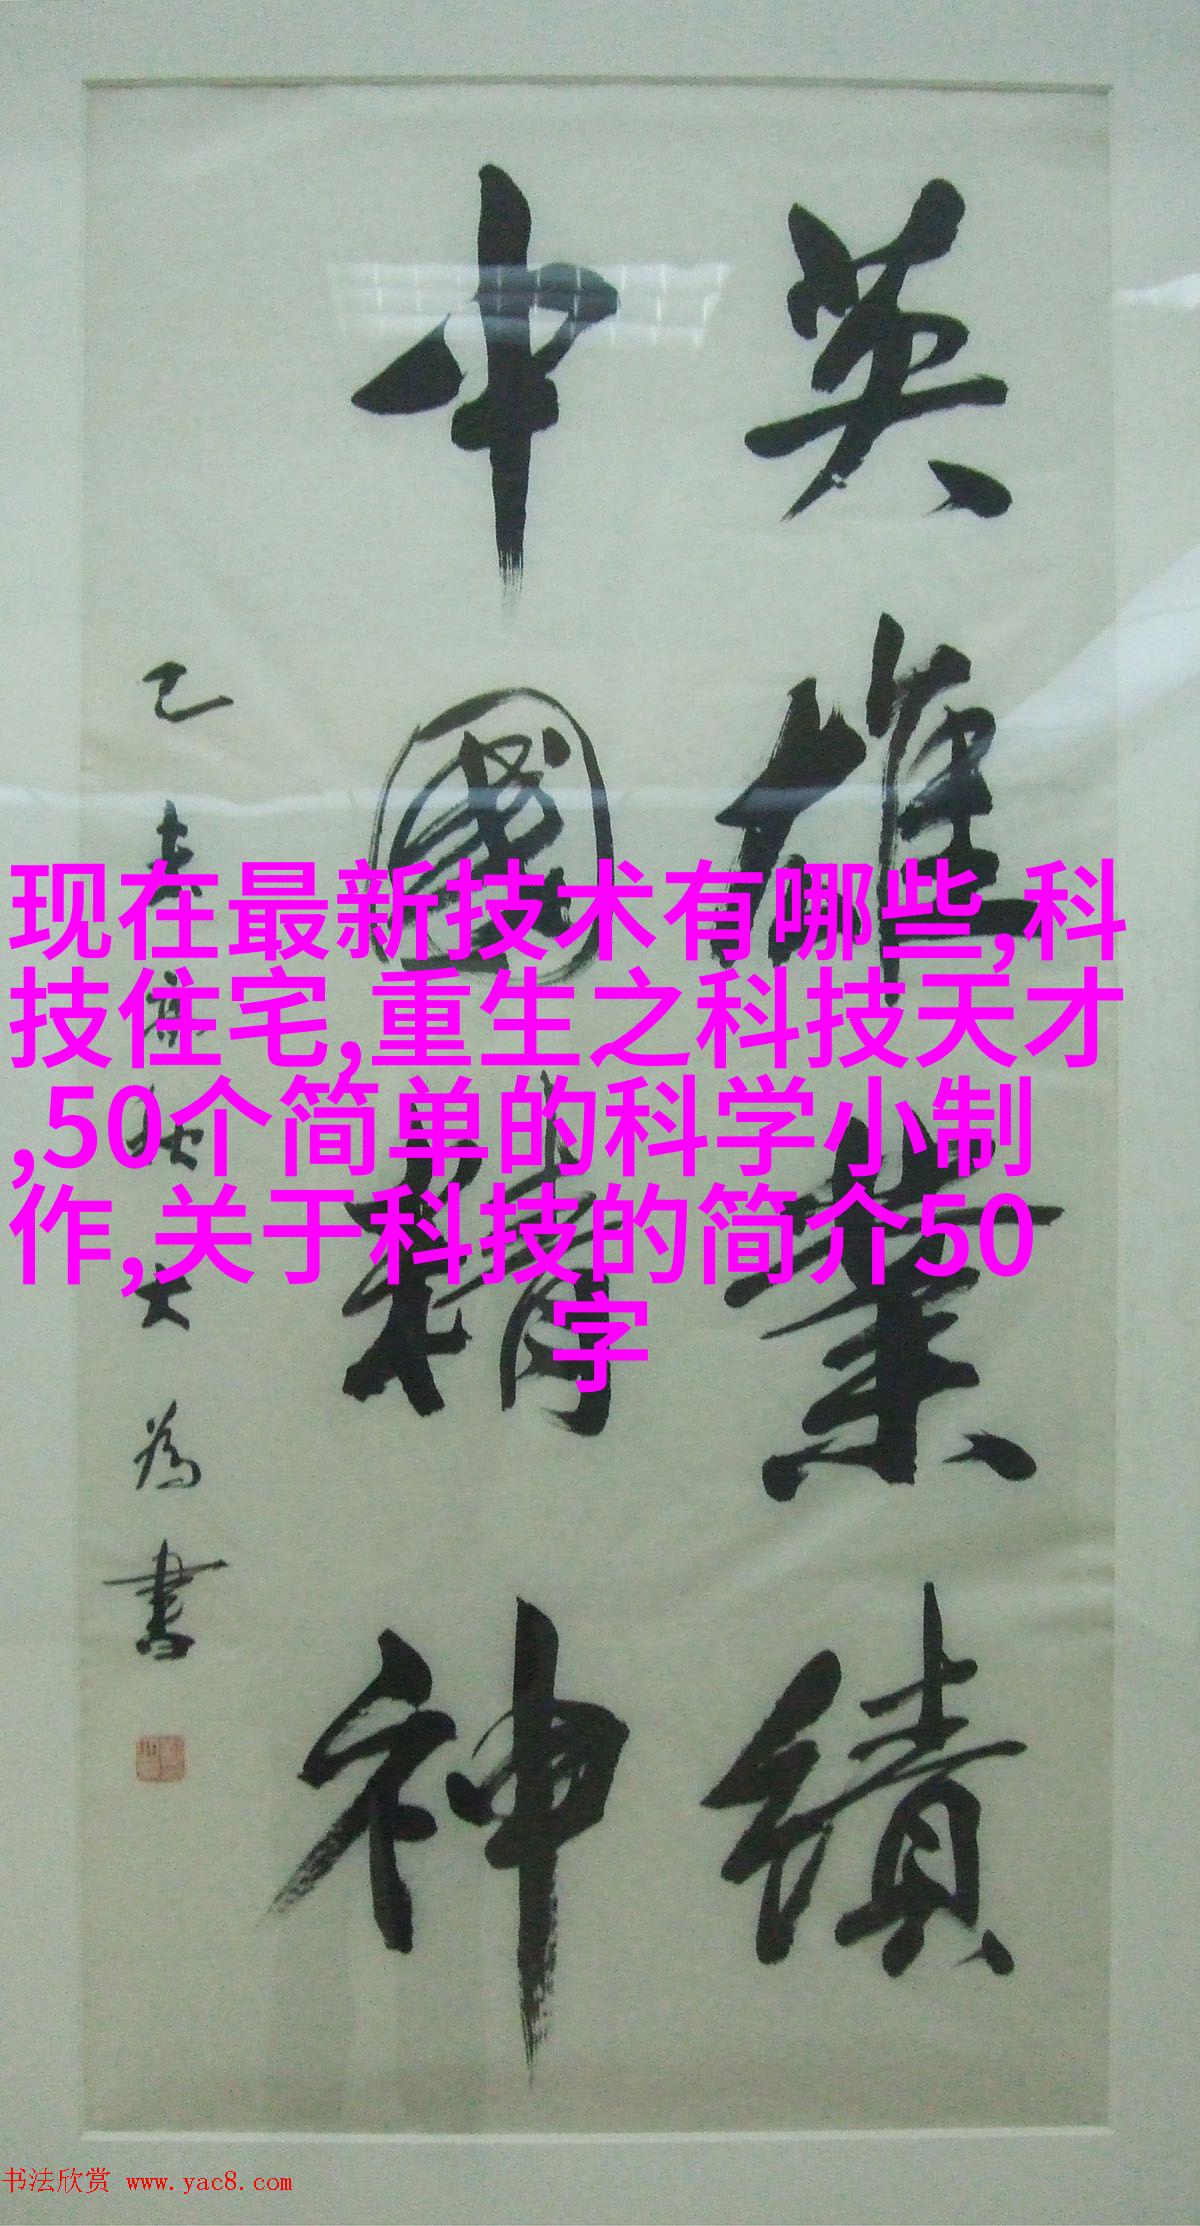 英雄業績
中國精神
己
大為書
现在最新技术有哪些,科
技住宅,重生之科技天才
,50个简单的科学小制
作,关于科技的简介50
字
书法欣赏 www.yac8.com